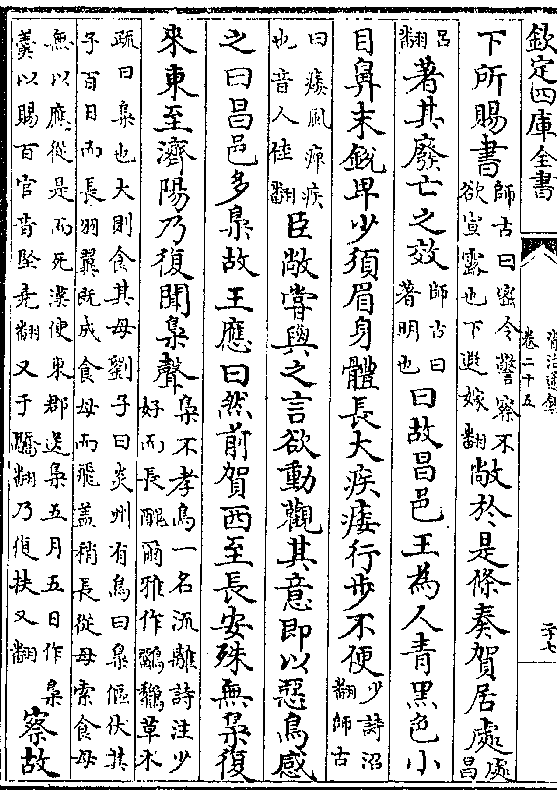 欽定四庫全書
資治通鑑
卷二十五
下所賜書
師古曰密令警察不
欲宣露也下遐嫁翻
敞於是條奏賀居處
處
昌
呂
翻
著其廢亡之效
師古曰
著明也
曰故昌邑王為人青黑色小
目鼻末銳卑少須眉身體長大疾痿行步不便
少詩沼
翻師古
曰痿風痺疾
也音人佳翻
臣敞嘗與之言欲動觀其意即以惡鳥感
之曰昌邑多梟故王應曰然前賀西至長安殊無梟復
來東至濟陽乃復聞梟聲
梟不孝鳥一名流離詩注少
好而長醜爾雅作鶹鷅草木
疏曰梟也大則食其母劉子曰炎州有鳥曰梟傴伏其
子百日而長羽翼既成食母而飛蓋稍長從母索食母
無以應從是而死漢使東郡送梟五月五日作梟
羹以賜百官音堅堯翻又于驕翻乃復扶又翻
察故